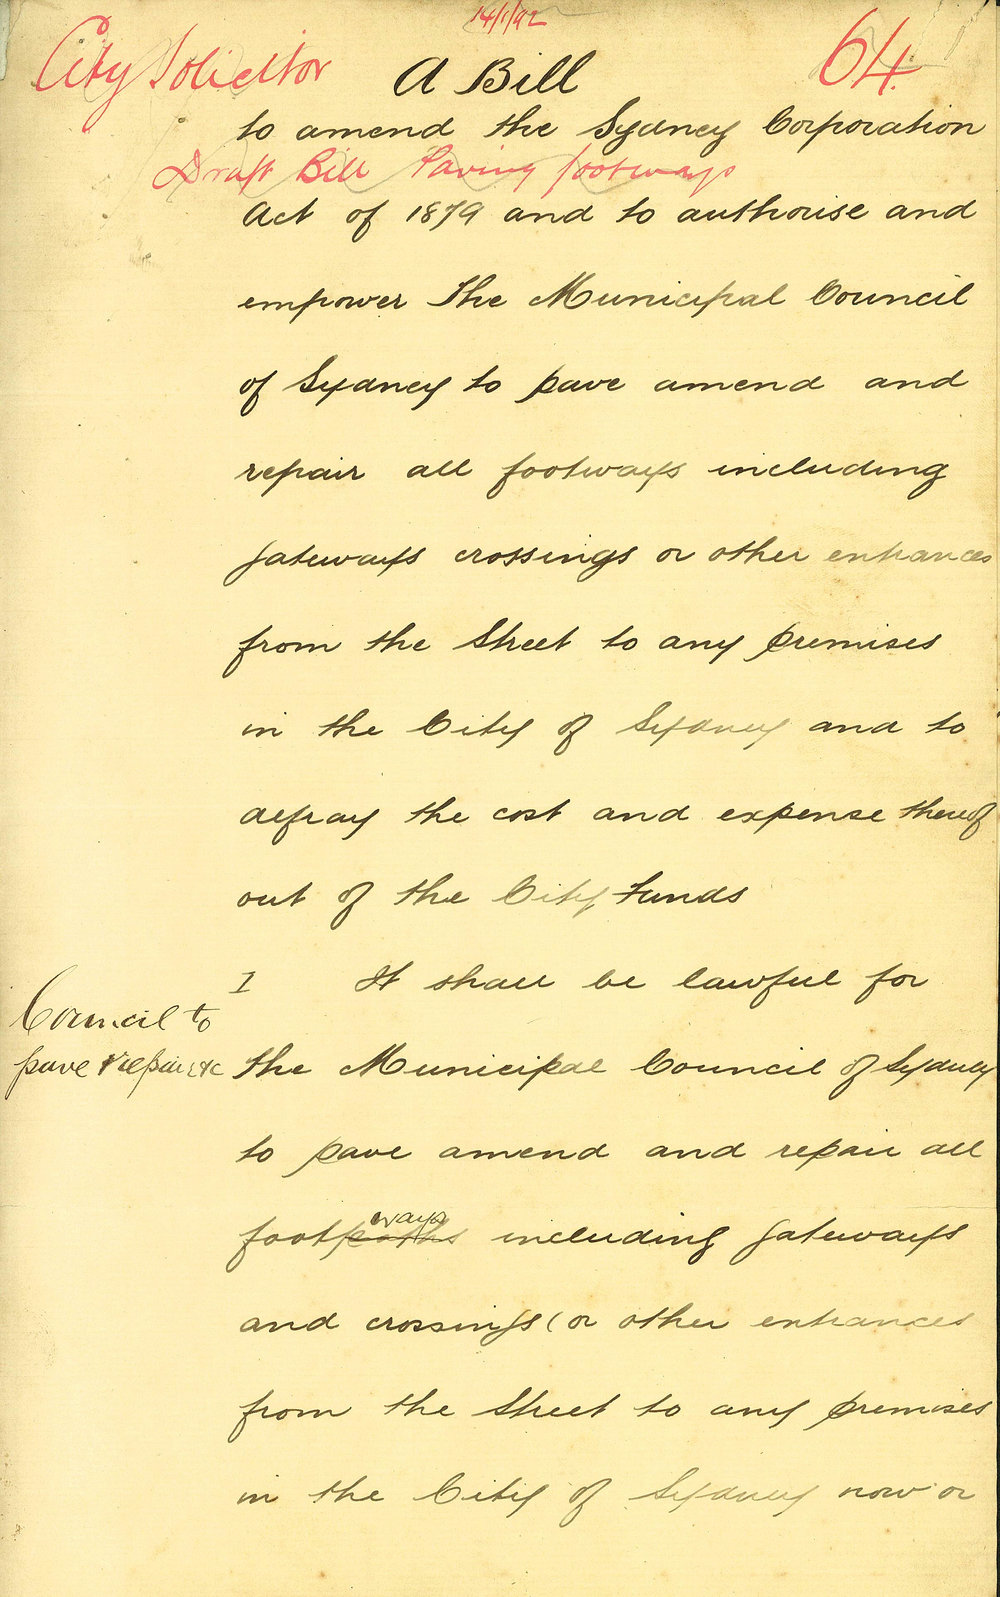 14/1/92
City Solicitor
64.
A Bill
to amend the Sydney Corporation
Draft Bill Paving footways
Act of 1879 and to authorise and
empower The Municipal Council
of Sydney to pave amend and
repair all footways including
gateways crossings or other entrances
from the Street to any premises
in the City of Sydney and to
defray the cost and expense thereof
out of the City Funds
1 It shall be lawful for
Council to
pave & repair &c
the Municipal Council of Sydney
to pave amend and repair all
ways
footpaths including gateways
and crossings (or other entrances
from the Street to any premises
in the City of Sydney now or